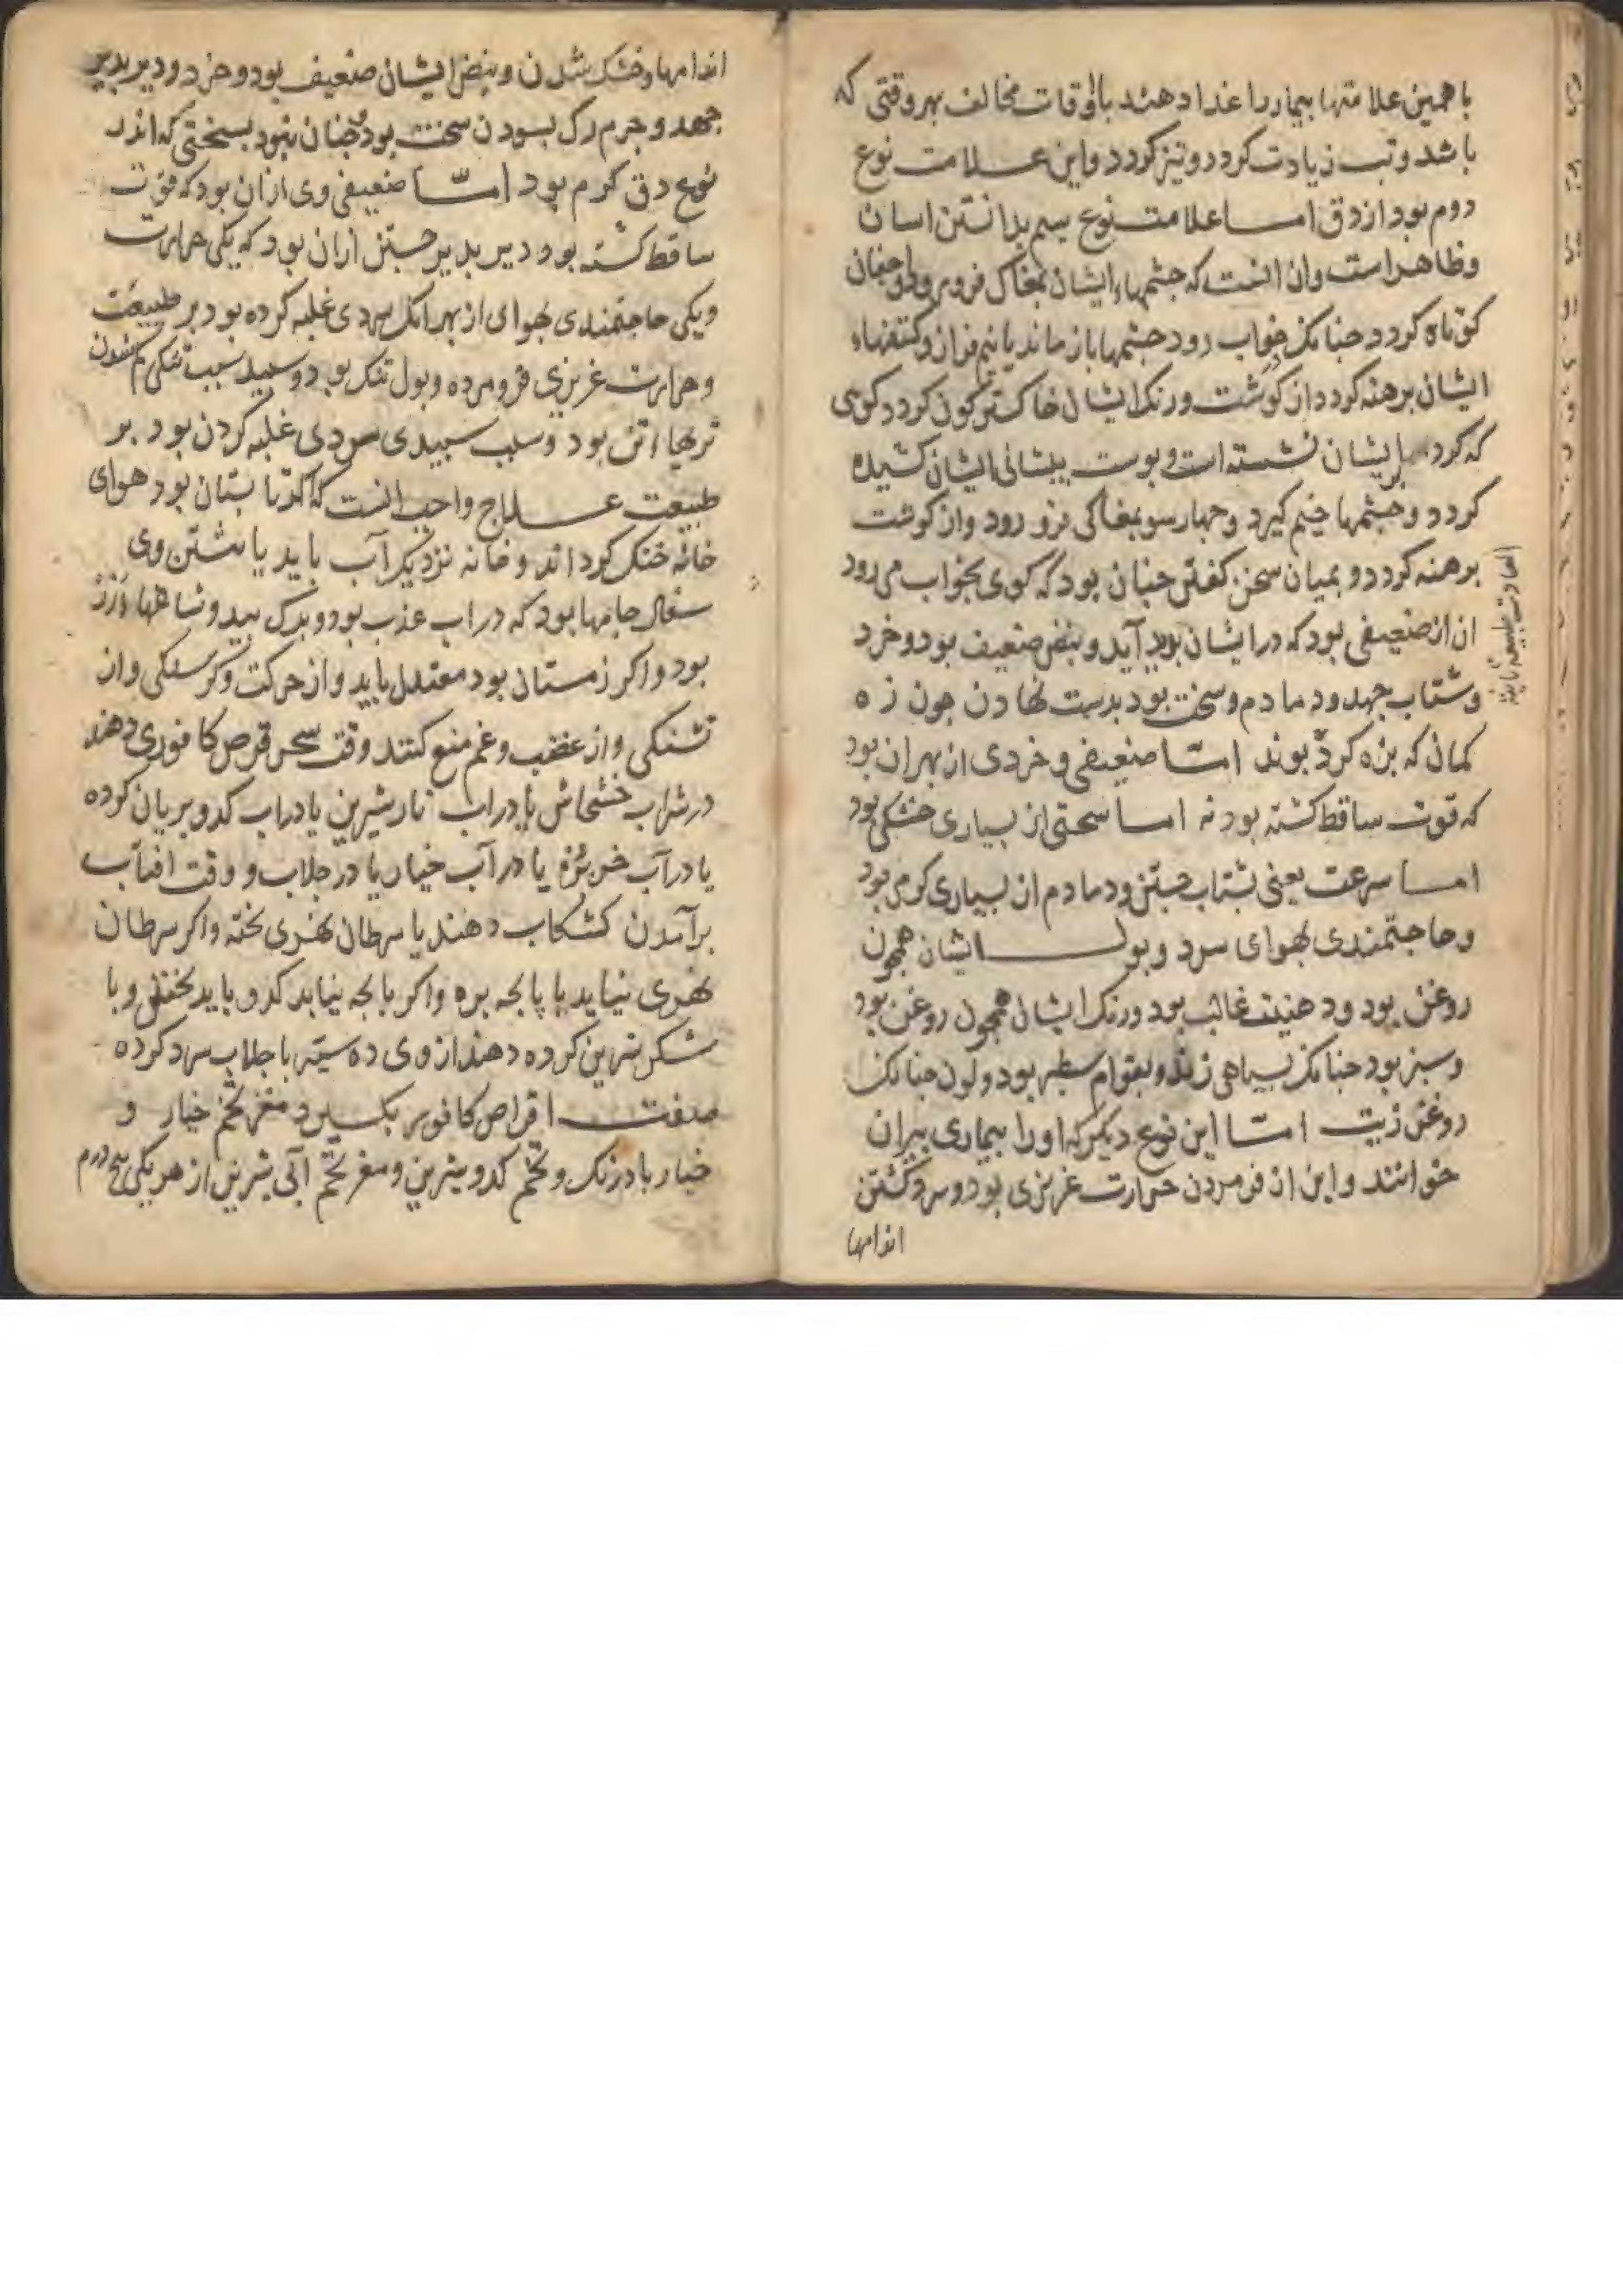 با همین علامتها بیمار را غذا دهند باوقات مخالف بهر وقتی که
باشد و تب زیادت کردد و تیز کردد و این علامت نوع
دوم بود از دق اما علامت نوع سیم بدانستن اسان
و ظاهر است و ان انست که جشمهاء ایشان بمغاک فرو رود و اجفان
کوتاه کردد جنانک خواب رود جشمها باز ماند یا نیم فراز و کتفهاء
ایشان برهنه کردد از کوشت و رنک ایشان خاکسترکون کردد کوی
که کرد بر ایشان نشسته است و بوست بیشانی ایشان کشیده
کردد و جشمها خیم کیرد و جهار سو بمغاکی فرو رود و از کوشت
برهنه کردد و بمیان سخن کفتن جنان بود که کوی بخواب می رود
ان از ضعیفی بود که در ایشان بدید آید و نبض ضعیف بود و خرد
و شتاب جهد و دمادم و سخت بود بدست نهادن جون زه
کمان که بزه کرده بوند امّا ضعیفی و خردی از بهر ان بود
که قوت ساقط کشته بود نه اما سختی از بسیاری خشکی بود
اما سرعت یعنی بشتاب جستن و دمادم از بسیاری کرمی بود
و حاجتمندی بهوای سرد و بول ایشان همجون
روغن بود و دهنیت غالب بود و رنک ایشان همجون روغن بود
و سبز بود جنانک بسیاهی زند و بقوام سطبر بود و لون جنانک
روغن زیت امّا این نوع دیکر که او را بیماری بیران
خوانند و این از فرومردن حرارت غریزی بود و سرد کشتن
اندامها
اندامها و خشک شدن و نبض ایشان ضعیف بود و خرد و دیر بدیر
جهد و جرم رک بسودن سخت بود و جنان نبود بسختی که اندر
نوع دق کرم بود امّا ضعیفی وی از ان بود که قوت
ساقط کشته بود و دیر بدیر جستن از ان بود که یکی حرارت
و یکی حاجتمندی بهوای از بهر انک سردی غلبه کرده بود بر طبیعت
و حرارت غریزی فرو مرده و بول تنک بود و سبید سبب تنکی کم شدن
تریها از تن بود و سبب سبیدی سردی غلبه کردن بود بر
طبیعت علاج واجب انست که اکر تابستان بود هوای
خانه خنک کرد اند و خانه نزدیک آب باید یا نشستن وی
جامها بود که در اب عذب بود و برک بید و شاهها
بود و اکر زمستان بود معتدل باید و از حرکت و کرسنکی و از
تشنکی و از غضب و غم منع کنند وقت سحر قرص کافوری دهند
در شراب خشخاش یا در اب نار شیرین یا در اب کدو بریان کرده
یا در آب خربزه یا در آب خیار یا در جلاب و وقت افتاب
برآمدن کشکاب دهند با سرطان نهری بخته و اکر سرطان
نهری نیابد با پایجه بره و اکر بایجه نیابد کدو باید بختن و با
شکر شیرین کرده دهند از وی ده سیتر با جلاب سرد کرده
صفت اقراص کافور بکیرد مغز تخم خیار و
خیار بادرنک و تخم کدو شیرین و مغز تخم آبی شیرین از هر یکی پنج درم